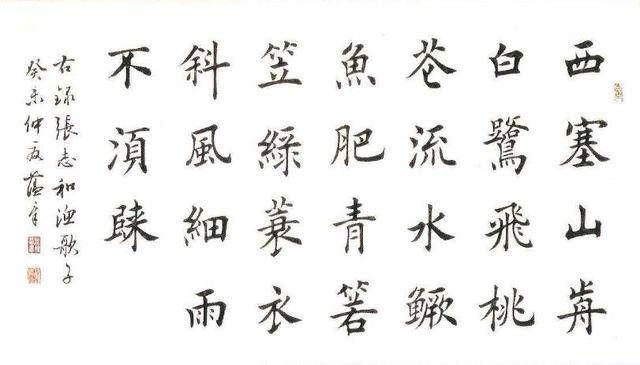 西塞山歬
白鷺飛桃
花流水鳜
魚肥青箬
笠綠蓑衣
斜風細雨
不湏歸
右錄張志和渔歌子
癸未仲夏